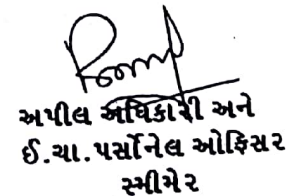 અપીલ અધિકારી અને
ઈ.ચા.પર્સોનેલ ઓફિસર
સ્મીમેર